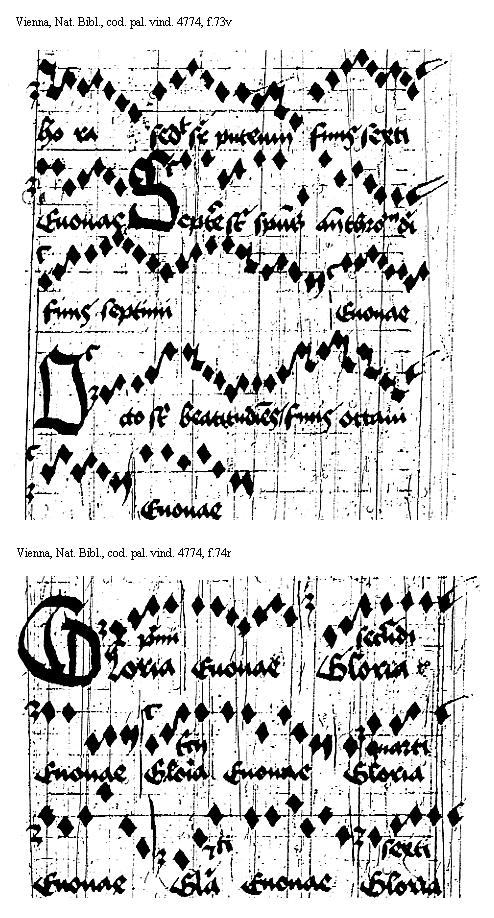 Vienna, Nat. Bibl., cod. pal. vind. 4774, f.73v
ho ra sedt st puteum finis sexti
Euouae Septē st spūs
finis septimi Euouae
Octo st beatitudies finis octaui
Euouae
Vienna, Nat. Bibl., cod. pal. vind. 4774, f.74r
pmi secūdi
Gloria Euouae Gloria
tcii quarti
Euouae Gloia Euouae Gloria
sexti
Euouae Gla Euouae Gloria